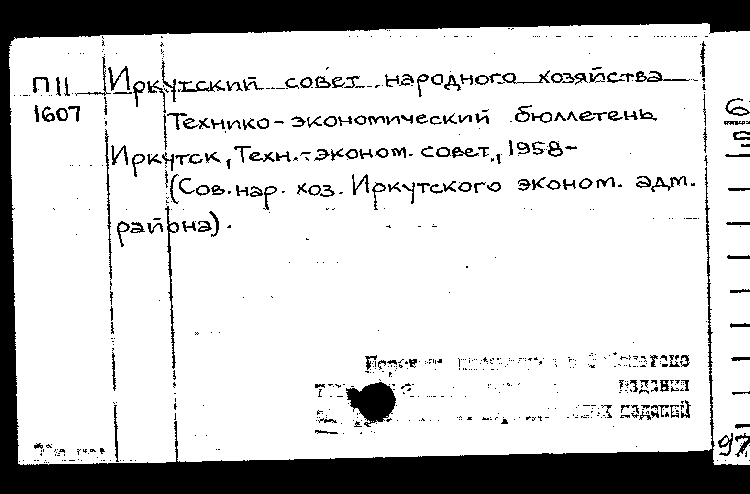 П11 Иркутский совет народного хозяйства
1607 Технико-экономический бюллетень
Иркутск, Техн.-эконом. совет, 1958-
(Сов. нар. хоз. Иркутского эконом. адм.
района).
издания
изданий
97